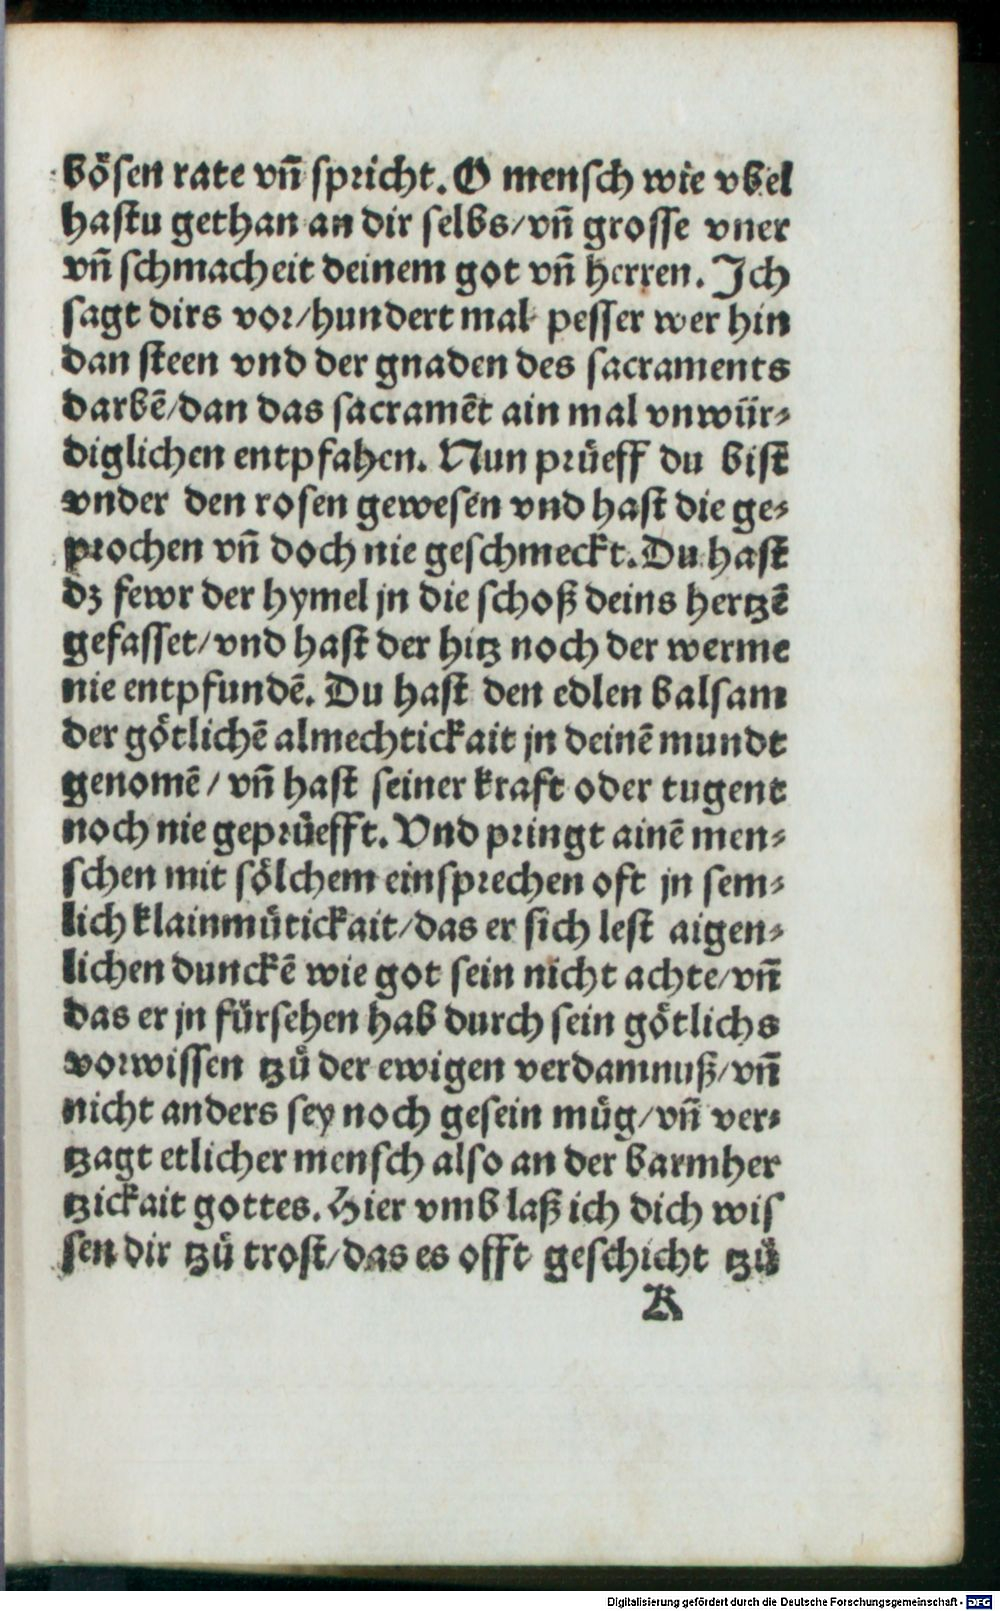 bösen rate vn̄ spricht. O mensch wie vbel
hastu gethan an dir selbs/vn̄ grosse vner
vn̄ schmacheit deinem got vn̄ herren. Ich
sagt dirs vor/hundert mal pesser wer hin
dan steen vnd der gnaden des sacraments
darbē/dan das sacramēt ain mal vnwür⸗
diglichen entpfahen. Nun prüeff du bist
vnder den rosen gewesen vnd hast die ge⸗
prochen vn̄ doch nie geschmeckt. Du hast
dz fewr der hymel jn die schoß deins hertzē
gefasset/vnd hast der hitz noch der werme
nie entpfundē. Du hast den edlen balsam
der götlichē almechtickait jn deinē mundt
genomē/ vn̄ hast seiner kraft oder tugent
noch nie geprüefft. Vnd pringt ainē men⸗
schen mit sölchem einsprechen oft jn sem⸗
lich klainmütickait/das er sich lest aigen⸗
lichen dunckē wie got sein nicht achte/vn̄
das er jn fürsehen hab durch sein götlichs
vorwissen tzů der ewigen verdamnuß/vn̄
nicht anders sey noch gesein müg/vn̄ ver⸗
tzagt etlicher mensch also an der barmher
tzickait gottes. Hier vmb laß ich dich wis
sen dir tzů trost/das es offt geschicht tzů
K
Digitalisierung gefördert durch die Deutsche Forschungsgemeinschaft - DFG